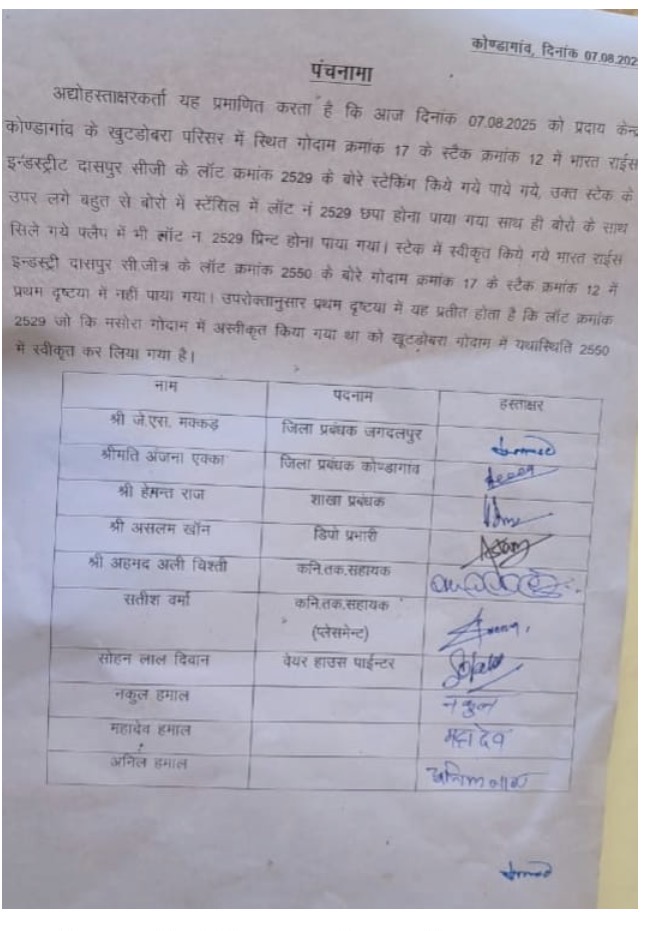 कोण्डागांव, दिनांक 07.08.202
पंचनामा
अद्योहस्ताक्षरकर्ता यह प्रमाणित करता है कि आज दिनांक 07.08.2025 को प्रदाय केन्द्र
कोण्डागांव के खुटडोबरा परिसर में स्थित गोदाम क्रमांक 17 के स्टैक क्रमांक 12 में भारत राईस
इन्डस्ट्रीट दासपुर सीजी के लॉट क्रमांक 2529 के बोरे स्टेकिंग किये गये पाये गये, उक्त स्टेक के
उपर लगे बहुत से बोरो में स्टेंसिल में लॉट नं 2529 छपा होना पाया गया साथ ही बोरो के साथ
सिले गये फ्लैप में भी लॉट न. 2529 प्रिन्ट होना पाया गया। स्टेक में स्वीकृत किये गये भारत राईस
इन्डस्ट्री दासपुर सी.जीत्र के लॉट क्रमांक 2550 के बोरे गोदाम क्रमांक 17 के स्टैक क्रमांक 12 में
प्रथम दृष्टया में नहीं पाया गया। उपरोक्तानुसार प्रथम दृष्टया में यह प्रतीत होता है कि लॉट क्रमांक
2529 जो कि मसोरा गोदाम में अस्वीकृत किया गया था को खूटडोबरा गोदाम में यथास्थिति 2550
में स्वीकृत कर लिया गया है।
नाम पदनाम हस्ताक्षर
श्री जे.एस. मक्कड़ जिला प्रबंधक जगदलपुर
श्रीमति अंजना एक्का जिला प्रबंधक कोण्डागांव
श्री हेमन्त राज शाखा प्रबंधक
श्री असलम खॉन डिपो प्रभारी
श्री अहमद अली चिश्ती कनि.तक.सहायक
सतीश वर्मा कनि.तक.सहायक
(प्लेसमेन्ट)
सोहन लाल दिवान वेयर हाउस पाईन्टर
नकुल हमाल नकुल
महादेव हमाल महादेव
अनिल हमाल